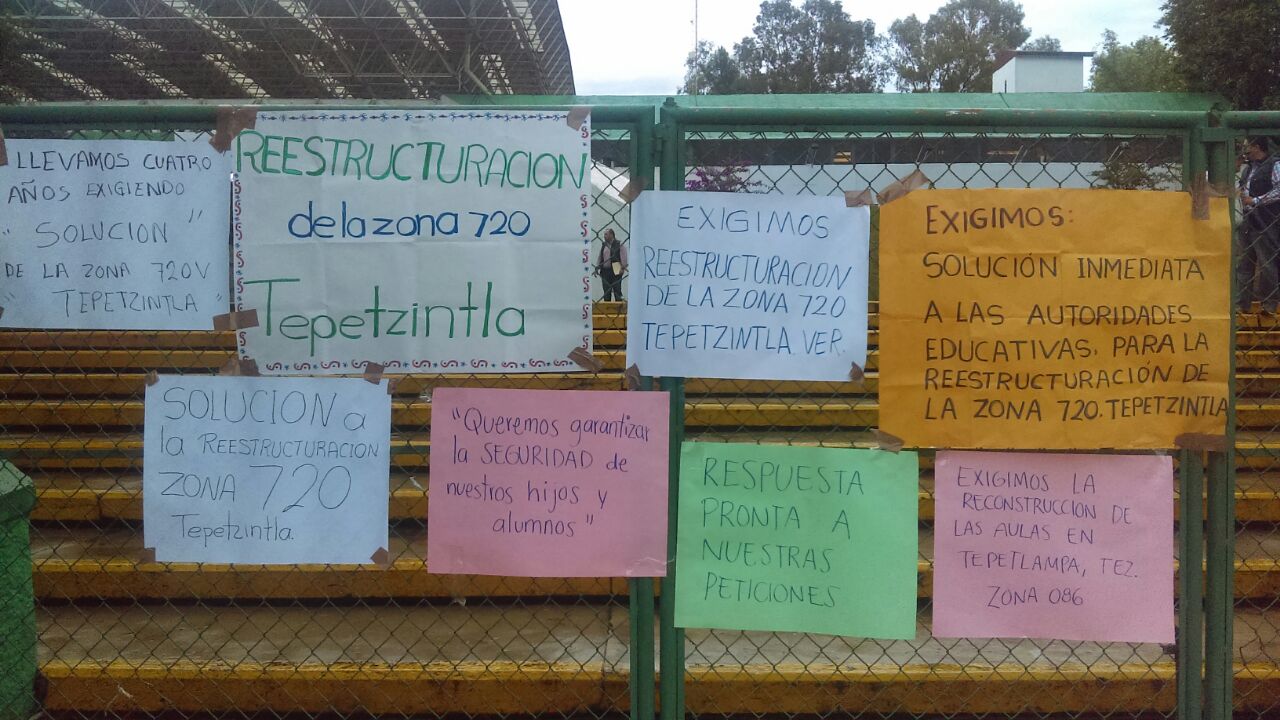 LLEVAMOS CUATRO
AÑOS EXIGIENDO
"SOLUCION"
DE LA ZONA 720V
"TEPETZINTLA"
REESTRUCTURACION
de la zona 720
Tepetzintla
EXIGIMOS
REESTRUCTURACION
DE LA ZONA 720
TEPETZINTLA. VER.
EXIGIMOS:
SOLUCIÓN INMEDIATA
A LAS AUTORIDADES
EDUCATIVAS. PARA LA
REESTRUCTURACIÓN DE
LA ZONA 720. TEPETZINTLA
SOLUCION a
la REESTRUCTURACION
ZONA 720
Tepetzintla.
"Queremos garantizar
la SEGURIDAD de
nuestros hijos y
alumnos"
RESPUESTA
PRONTA A
NUESTRAS
PETICIONES
EXIGIMOS LA
RECONSTRUCCION DE
LAS AULAS EN
TEPETLAMPA, TEZ.
ZONA 086